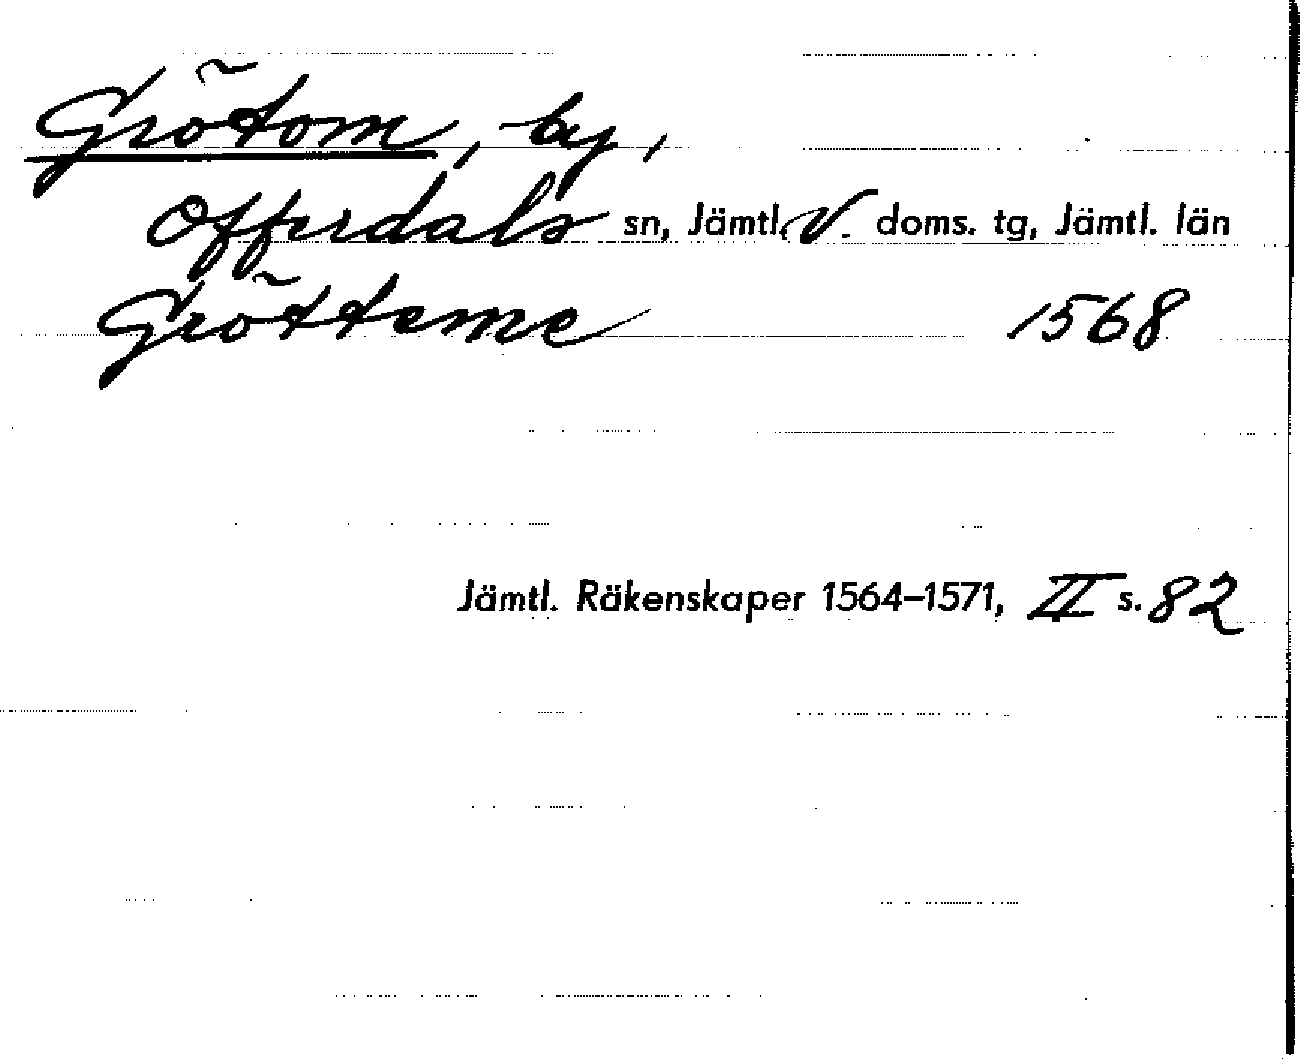 Grötom, by,
Offerdals sn, Jämtl. V. doms. tg, Jämtl. län
Grötteme 1568
Jämtl. Räkenskaper 1564–1571, II s. 82